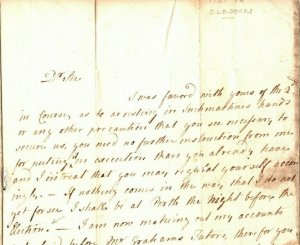 Dr Sir
I was favord with yours of the 2d
in Course, as to arresting in Inchmathies hands
or any other precaution that you see necessary to
secure us, you need no further instruction from me
for puting in execution than you already have
and I intreat that you may regulat yourself accor
ingly. – If nothing comes in the way that I do not
yet forsee I shall be at Perth the Night before the
Election. – I am now making out my accounts
before Mr Grahams Tutors, therefor you